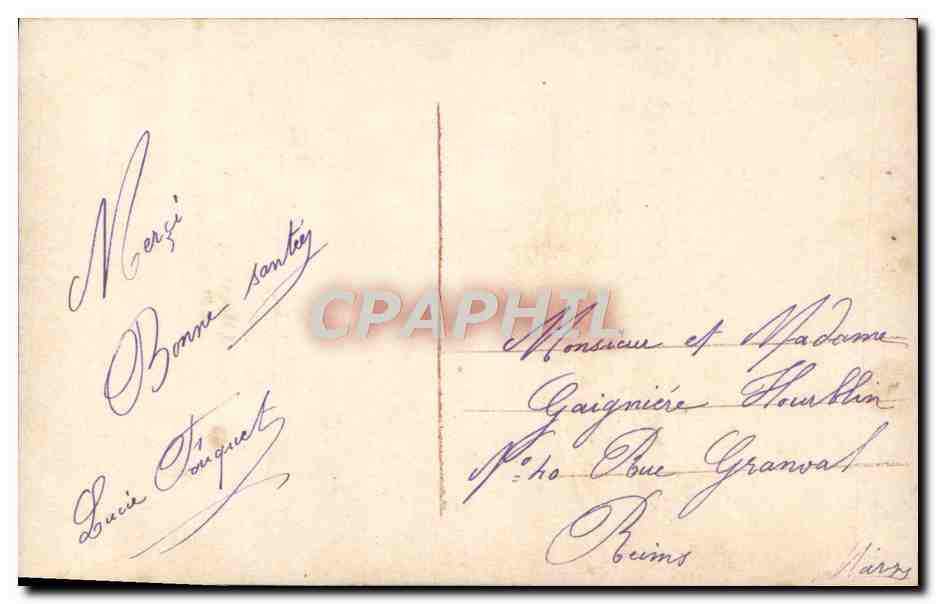 Merçi
Bonne santée
Lucie Fouquet
CPAPHIL
Monsieur et Madame
Gaignière Hourblin
N° 40 Rue Granval
Reims